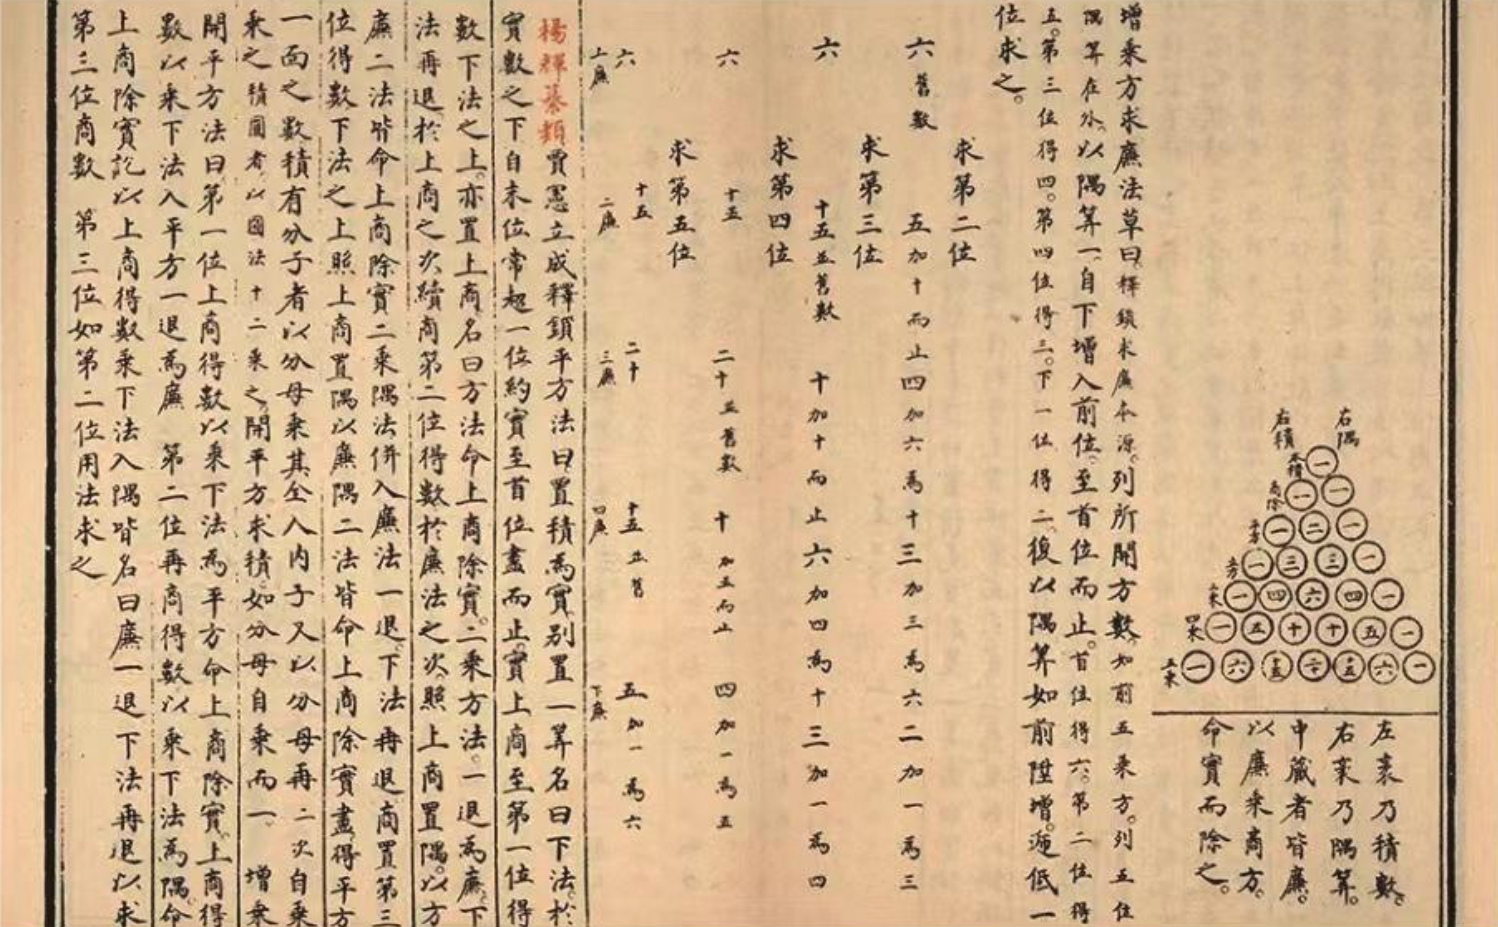 右積
右隅
本積
一
商除
一 一
平方
一 二 一
立方
一 三 三 一
三乘
一 四 六 四 一
四乘
一 五 十 十 五 一
五乘
一 六 十五 二十 十五 六 一
左袤乃積數。
右袤乃隅算。
中藏者皆廉。
以廉乘商方。
命實而除之。
增乘方求廉法草曰釋鎖求廉本源。列所開方數。如前五乘方。列五位
隅算在外。以隅算一、自下增入前位。至首位而止。首位得六。第二位得
五。第三位得四。第四位得三。下一位得二。復以隅算如前陞增。遞低一
位求之。
求第二位
六舊數 五加十而止 四加六為十 三加三為六 二加一為三
求第三位
六 十五並舊數 十加十而止 六加四為十 三加一為四
求第四位
六 十五 二十並舊數 十加五而止 四加一為五
求第五位
六 十五 二十 十五並舊 五加一為六
上廉 二廉 三廉 四廉 下廉
楊輝纂類賈憲立成釋鎖平方法曰置積為實別置一算名曰下法。於
實數之下自末位常超一位約實至首位盡而止。實上商至第一位得
數下法之上。亦置上商名曰方法命上商除實。二乘方法。一退為廉。下
法再退。於上商之次續商第二位得數於廉法之次。照上商置隅。以方
廉二法皆命上商除實二乘隅法併入廉法一退。下法再退商置第三
位得數下法之上照上商置隅以廉隅二法皆命上商除實盡得平方
一面之數積有分子者以分母乘其全入內子又以分母再二次自乘
乘之積圓者以圓法十二乘之。開平方求積如分母自乘而一。 增乘
開平方法曰第一位上商得數以乘下法為平方命上商除實。上商得
數以乘下法入平方一退為廉 第二位再商得數以乘下法為隅命
上商除實訖以上商得數乘下法入隅皆名曰廉一退下法再退以求
第三位商數 第三位如第二位用法求之